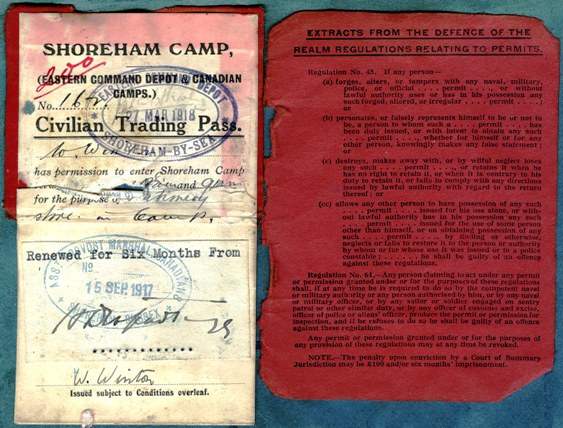 SHOREHAM CAMP,
(EASTERN COMMAND DEPOT & CANADIAN
CAMPS.)
No. 162
EASTERN COMMAND DEPOT
27 MAR 1918
SHOREHAM-BY-SEA
Civilian Trading Pass.
has permission to enter Shoreham Camp
and
for the purpose
store in Camp.
Renewed for Six Months From
ASS. PROVOST MARSHAL
No
15 SEP 1917
29
W. Winton
Issued subject to Conditions overleaf.
EXTRACTS FROM THE DEFENCE OF THE
REALM REGULATIONS RELATING TO PERMITS.
Regulation No. 45. If any person—
(a) forges, alters, or tampers with any naval, military,
police, or official .... permit ...., or without
lawful authority uses or has in his possession any
such forged, altered, or irregular .... permit ....;
or
(b) personates, or falsely represents himself to be or not to
be, a person to whom such a .... permit .... has
been duly issued, or with intent to obtain any such
.... permit ...., whether for himself or for any
other person, knowingly makes any false statement;
or
(c) destroys, makes away with, or by wilful neglect loses
any such .... permit ...., or retains it when he
has no right to retain it, or when it is contrary to his
duty to retain it, or fails to comply with any directions
issued by lawful authority with regard to the return
thereof; or
(cc) allows any other person to have possession of any such
.... permit .... issued for his use alone, or with-
out lawful authority has in his possession any such
.... permit .... issued for the use of some person
other than himself, or on obtaining possession of any
such .... permit .... by finding or otherwise,
neglects or fails to restore it to the person or authority
by whom or for whose use it was issued or to a police
constable; .... he shall be guilty of an offence
against these regulations.
Regulation No. 61.—Any person claiming to act under any permit
or permission granted under or for the purposes of these regulations
shall, if at any time he is required to do so by the competent naval
or military authority or any person authorised by him, or by any naval
or military officer, or by any sailor or soldier engaged on sentry
patrol or other similar duty, or by any officer of customs and excise,
officer of police or aliens' officer, produce the permit or permission for
inspection, and if he refuses to do so he shall be guilty of an offence
against these regulations.
Any permit or permission granted under or for the purposes of
any provision of these regulations may at any time be revoked.
NOTE.—The penalty upon conviction by a Court of Summary
Jurisdiction may be £100 and/or six months' imprisonment.